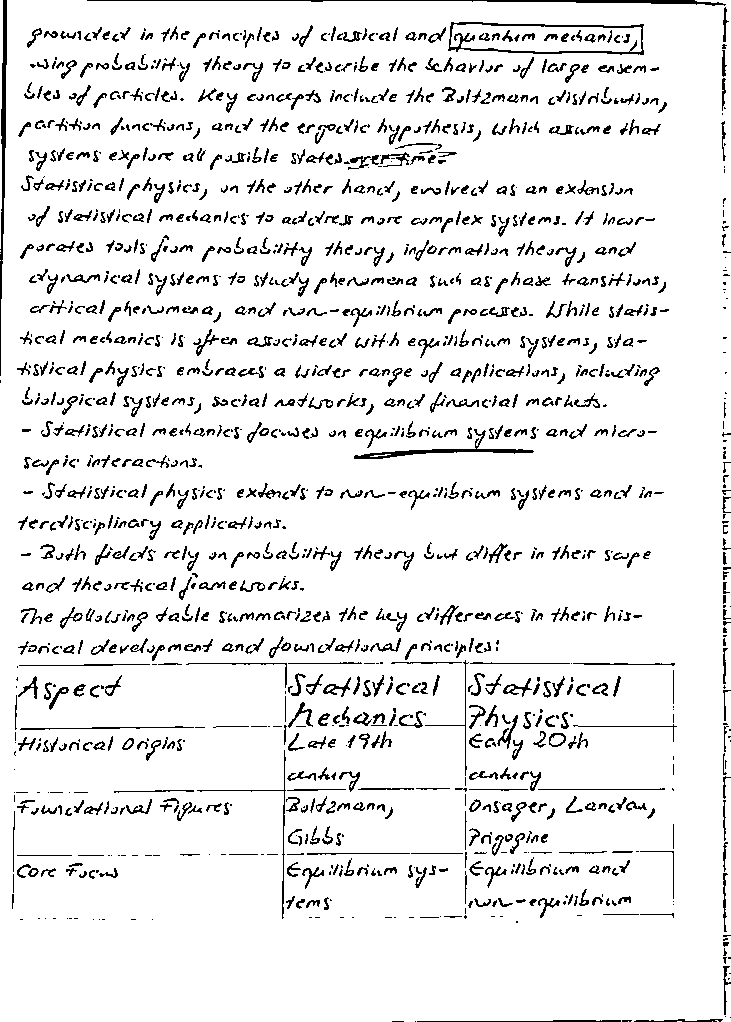 grounded in the principles of classical and quantum mechanics,
using probability theory to describe the behavior of large ensem-
bles of particles. Key concepts include the Boltzmann distribution,
partition functions, and the ergodic hypothesis, which assume that
systems explore all possible states over time.
Statistical physics, on the other hand, evolved as an extension
of statistical mechanics to address more complex systems. It incor-
porates tools from probability theory, information theory, and
dynamical systems to study phenomena such as phase transitions,
critical phenomena, and non-equilibrium processes. While statis-
tical mechanics is often associated with equilibrium systems, sta-
tistical physics embraces a wider range of applications, including
biological systems, social networks, and financial markets.
- Statistical mechanics focuses on equilibrium systems and micro-
scopic interactions.
- Statistical physics extends to non-equilibrium systems and in-
terdisciplinary applications.
- Both fields rely on probability theory but differ in their scope
and theoretical frameworks.
The following table summarizes the key differences in their his-
torical development and foundational principles:
Aspect Statistical Statistical
Mechanics Physics
Historical Origins Late 19th Early 20th
century century
Foundational Figures Boltzmann, Onsager, Landau,
Gibbs Prigogine
Core Focus Equilibrium sys- Equilibrium and
tems non-equilibrium